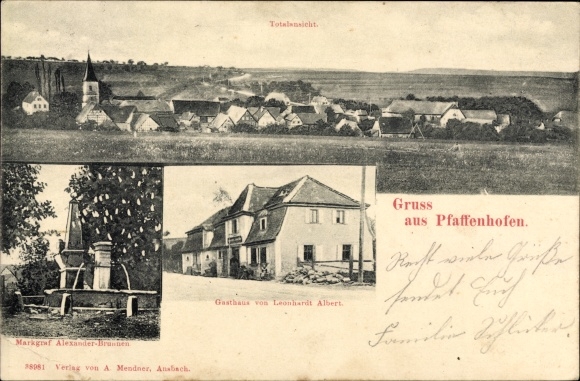 Totalansicht.
Gruss
aus Pfaffenhofen.
Recht viele Grüße
sendet Euch
Familie Schleicher
Gasthaus von Leonhardt Albert.
Markgraf Alexander-Brunnen
38981 Verlag von A. Mendner, Ansbach.